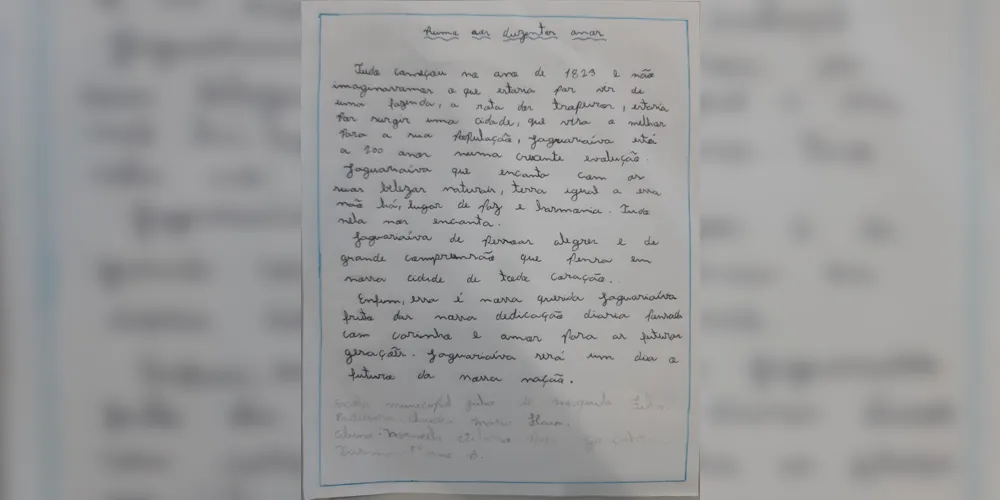 Rumo aos duzentos anos
Tudo começou no ano de 1823 e não
imaginavamos o que estaria por vir de
uma fazenda, a rota dos tropeiros, estaria
Por surgir uma cidade, que vira a melhor
Para a sua População, Jaguariaíva está
a 200 anos numa crescente evolução.
Jaguariaíva que encanta com as
suas belezas naturais, terra igual a essa
não há, lugar de Paz e harmonia. Tudo
nela nos encanta.
Jaguariaíva de Pessoas alegres e de
grande compreensão que Pensa em
nossa cidade de todo coração.
Enfim, essa é nossa querida Jaguariaíva
fruto das nossa dedicação diaria Pensada
com carinho e amor Para as futuras
gerações. Jaguariaíva será um dia o
futuro da nossa nação.
municipal de Mesquita Filho
Professora Maria
Aluno
Turma